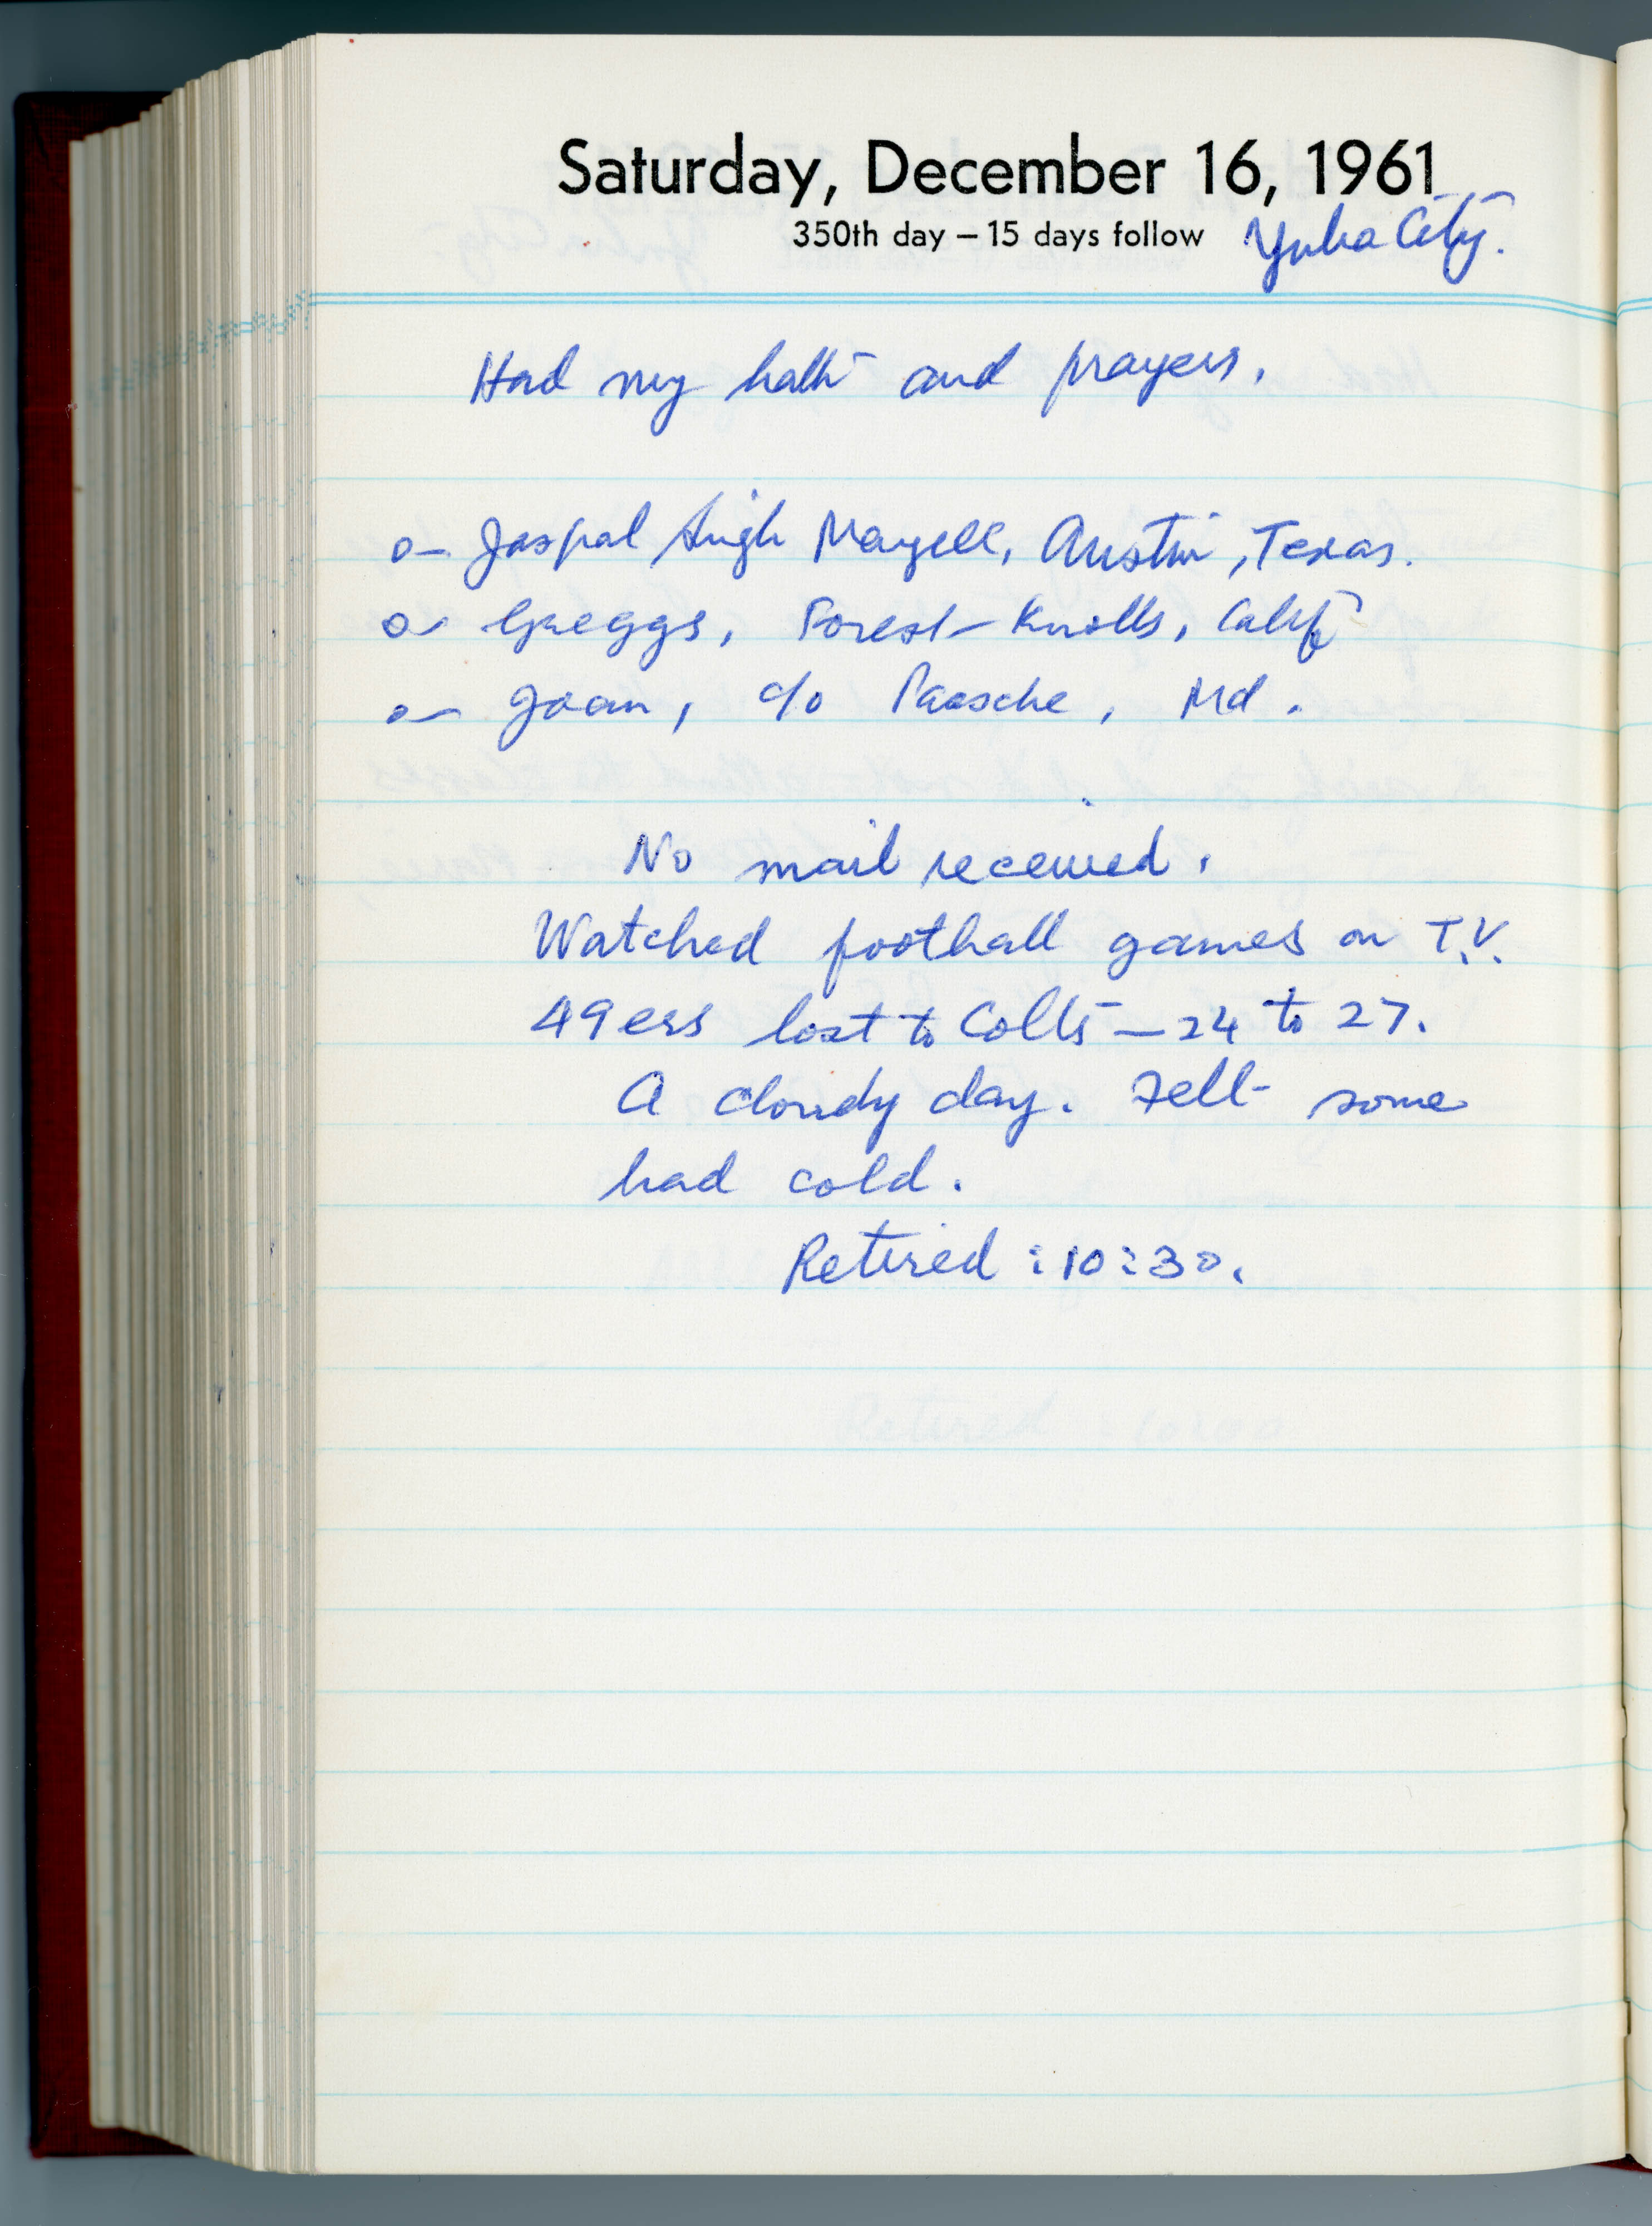 Saturday, December 16, 1961
350th day – 15 days follow Yuba City.
Had my bath and prayers.
o– Jaspal Singh Mayell, Austin, Texas.
o– Greggs, Forest Knolls, Calif
o– Joan, c/o Paasche, Md.
No mail received.
Watched football games on T.V.
49ers lost to Colts – 24 to 27.
A cloudy day. Felt some
bad cold.
Retired : 10:30.